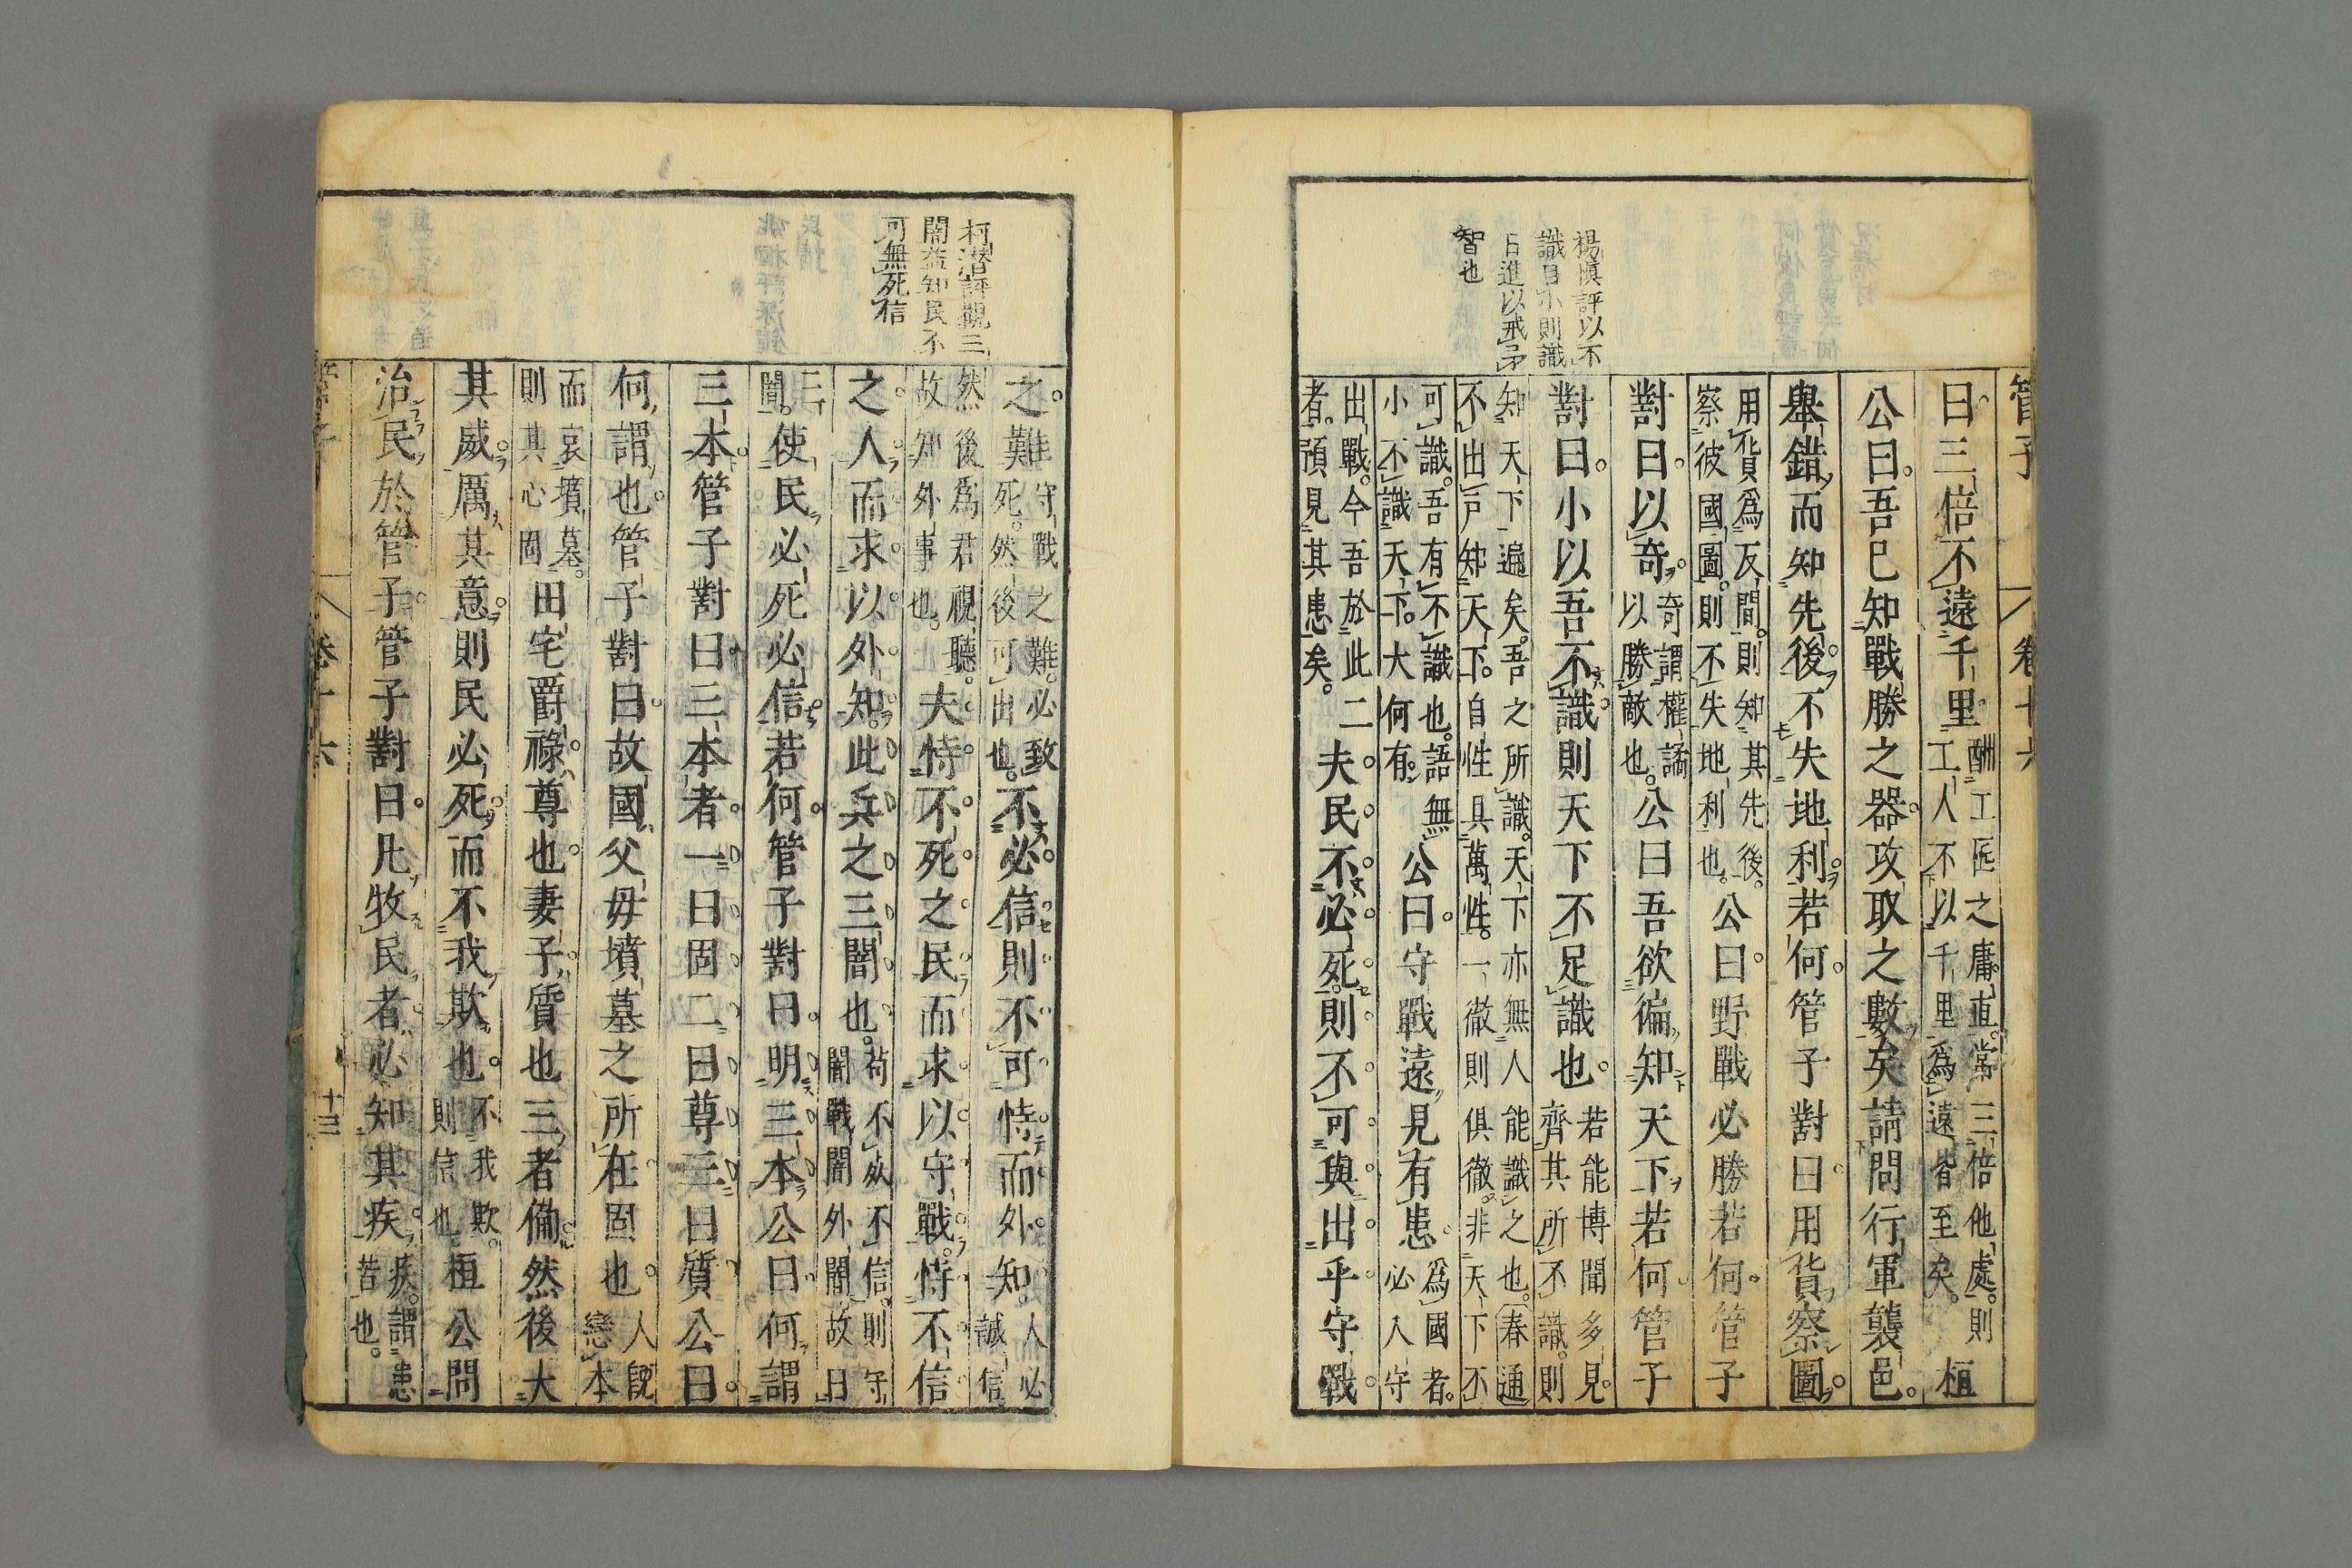 管子
卷十六
楊愼評以不
識目小則識
日進以戒予
智也
曰三倍不遠千里酬工匠之庸直常三倍他處則
工人不以千里爲遠皆至矣桓
公曰吾已知戰勝之器攻取之數矣請問行軍襲邑
舉錯而知先後不失地利若何管子對曰用貨察圖
用貨爲反間則知其先後
察彼國圖則不失地利也公曰野戰必勝若何管子
對曰以奇奇謂權譎
以勝敵也公曰吾欲徧知天下若何管子
對曰小以吾不識則天下不足識也若能博聞多見
齊其所不識則
知天下遍矣吾之所識天下亦無人能識之也春通
不出戶知天下自性具萬性一徹則俱徹非天下不
可識吾有不識也語無
小不識天下大何有公曰守戰遠見有患爲國者
必入守
出戰今吾於此二
者預見其患矣夫民不必死則不可與出乎守戰
柯潜評觀三
闇益知民不
可無死信
之難守戰之難必致
死然後可出也不必信則不可恃而外知人必
誠信
然後爲君視聽
故知外事也夫恃不死之民而求以守戰恃不信
之人而求以外知此兵之三闇也苟不死不信則守
闇戰闇外闇故曰
三
闇使民必死必信若何管子對曰明三本公曰何謂
三本管子對曰三本者一曰固二曰尊三曰質公曰
何謂也管子對曰故國父毋墳墓之所在固也人旣
戀本
而哀墳墓
則其心固田宅爵祿尊也妻子質也三者備然後大
其威厲其意則民必死而不我欺也不我欺
則信也桓公問
治民於管子管子對曰凡牧民者必知其疾疾謂患
苦也
卷十六
十三